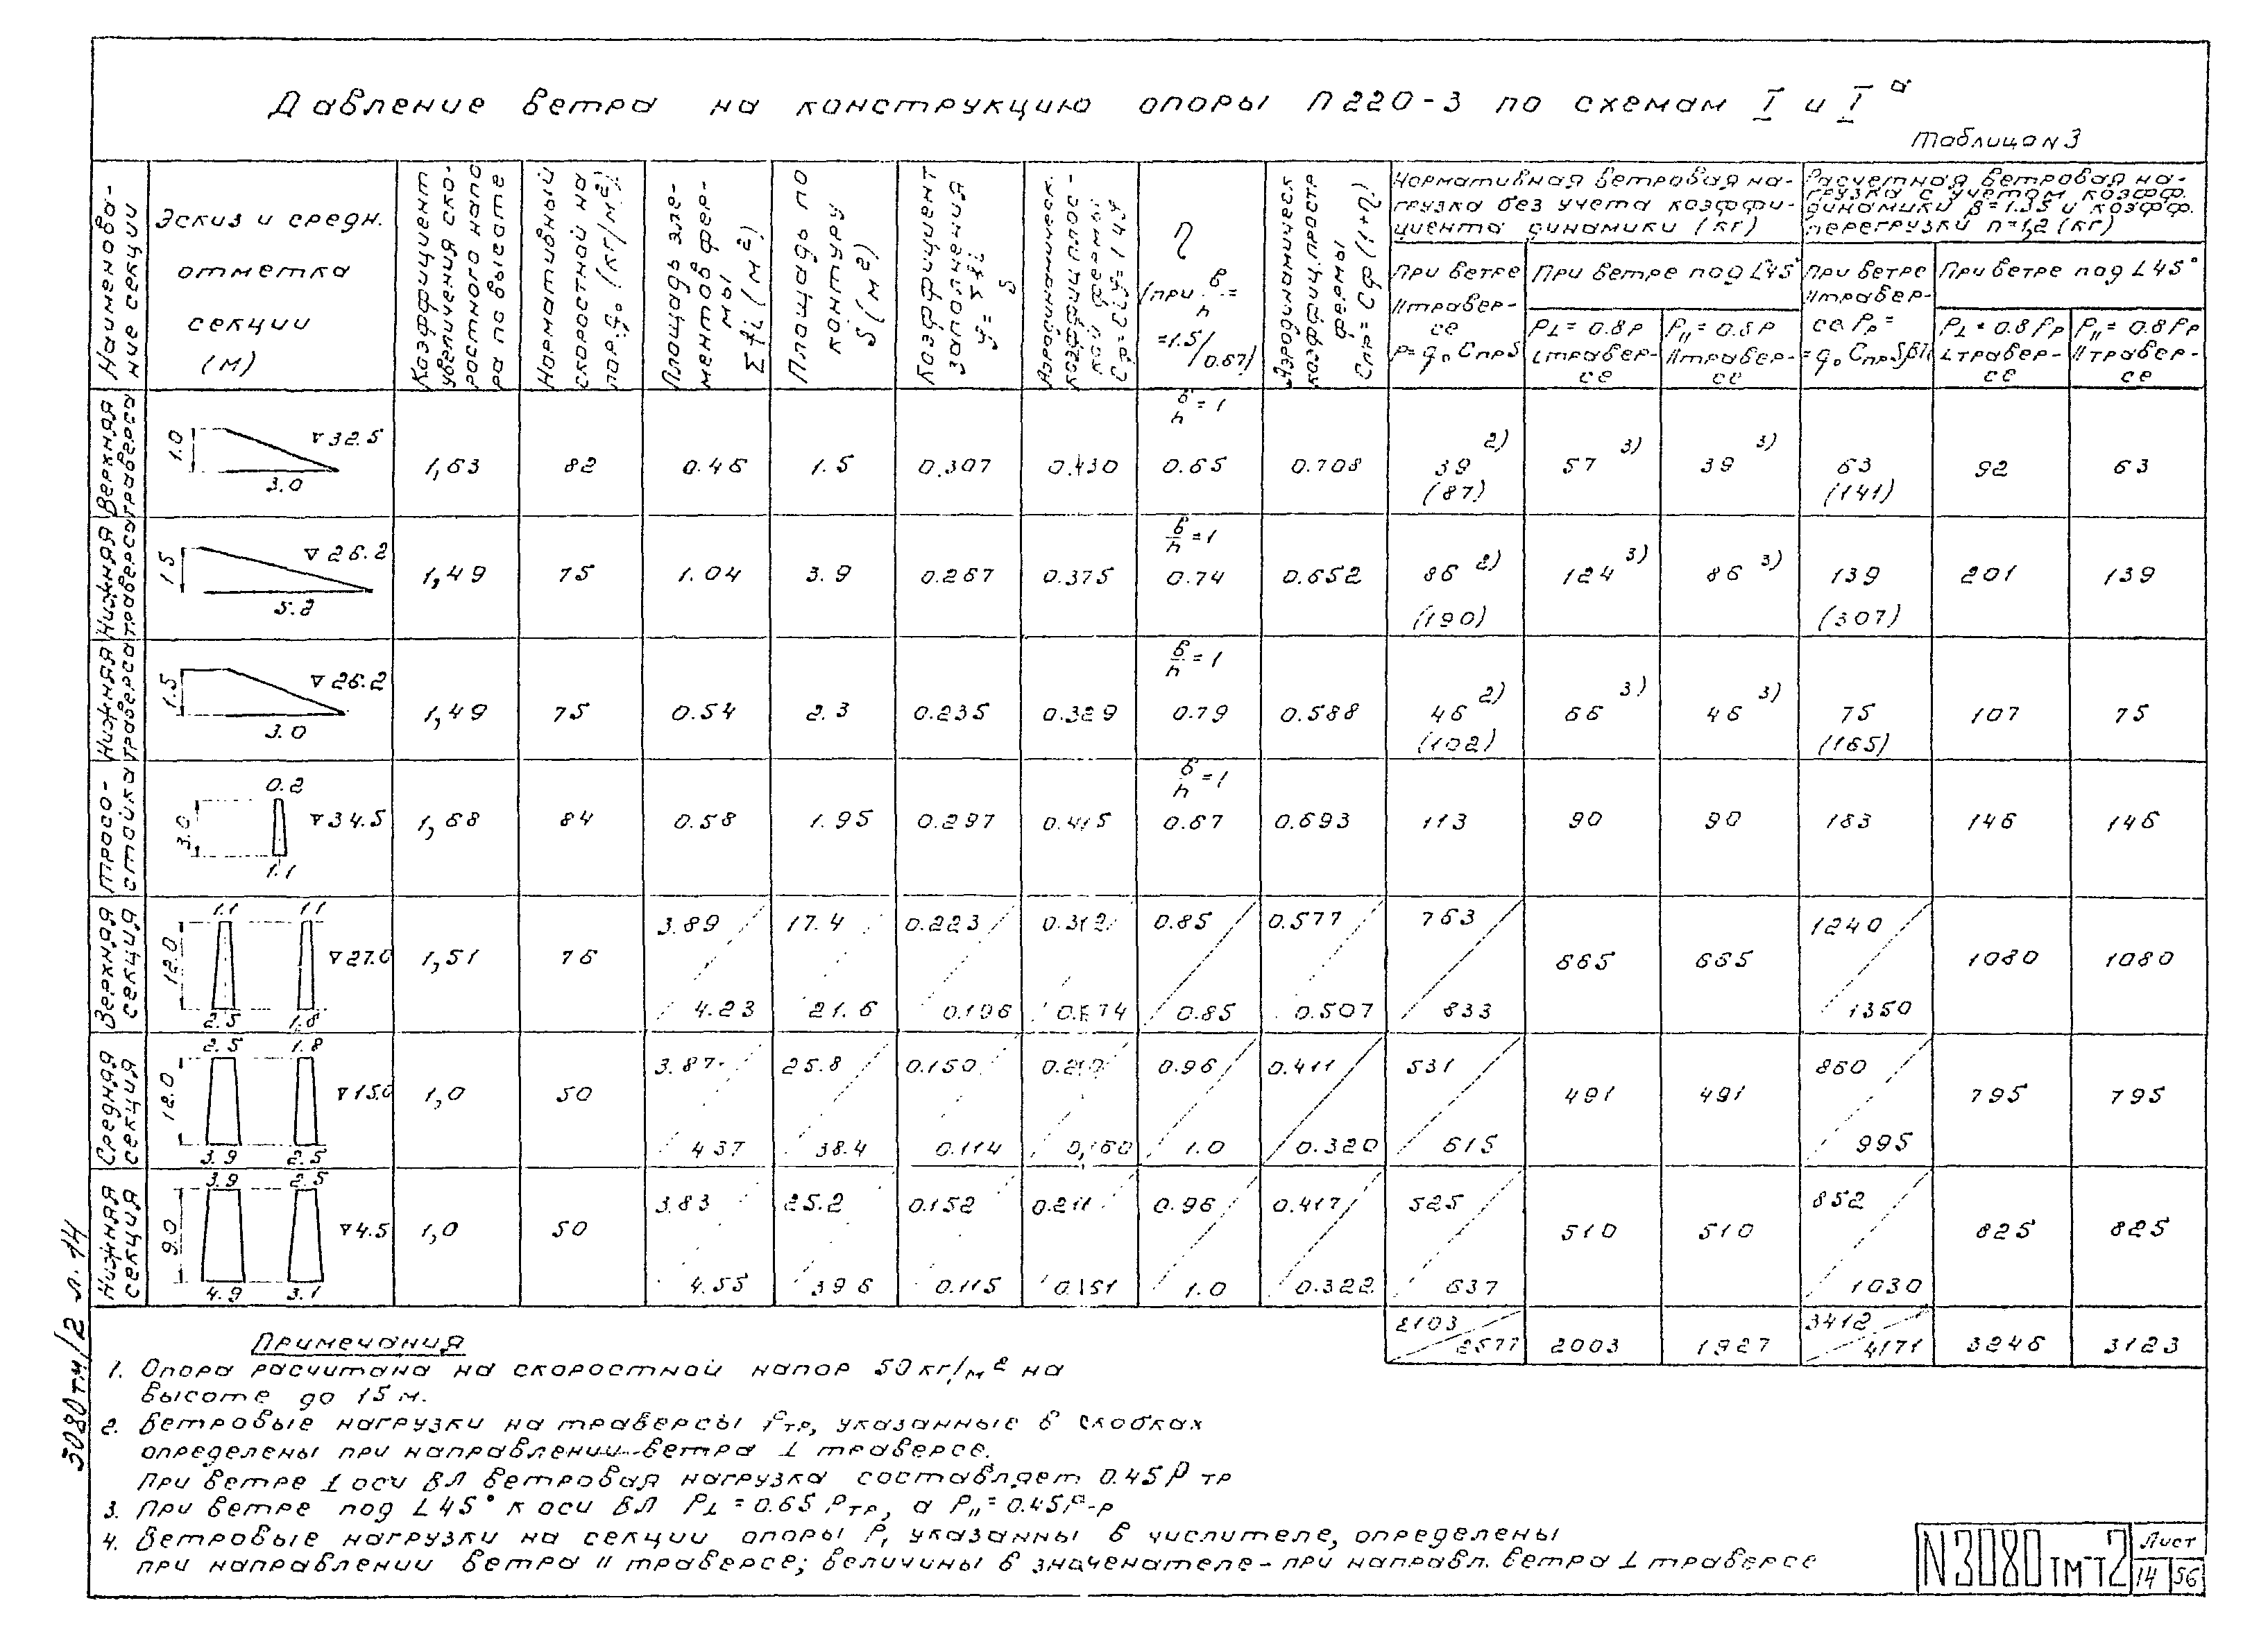 Давление ветра на конструкцию опоры П220-3 по схемам I и Iа
Таблица N3
Наименование секции
Эскиз и средн. отметка секции (м)
Коэффициент увеличения скоростного напора по высоте
Нормативный скоростной напор q₀ (кг/м²)
Площадь элементов фермы Σfi (м²)
Площадь по контуру S (м²)
Коэффициент заполнения φ = Σfi/S
η (при б/h = =1.5/0.67)
Нормативная ветровая нагрузка без учета коэффициента динамики (кг)
Расчетная ветровая нагрузка с учетом коэфф. динамики β=1.35 и коэфф. перегрузки n=1,2 (кг)
При ветре II траверсе P=q₀СпрS
При ветре под L45°
P⊥=0.8P ⊥траверсе
P,,=0.8P IIтраверсе
При ветре IIтраверсе Pр= =q₀СпрSβn
При ветре под L45°
P⊥=0.8Pр ⊥траверсе
P,,=0.8Pр IIтраверсе
Верхняя траверса
1.0 3.0 ▽32.5 1,63 82 0.46 1.5 0.307 0.430 б/h=1 0.65 0.708 39 2) (87) 57 3) 39 3) 63 (141) 92 63
Нижняя траверса
1.5 5.2 ▽26.2 1,49 75 1.04 3.9 0.267 0.375 б/h=1 0.74 0.652 86 2) (190) 124 3) 86 3) 139 (307) 201 139
Нижняя траверса
1.5 3.0 ▽26.2 1,49 75 0.54 2.3 0.235 0.329 б/h=1 0.79 0.588 46 2) (102) 66 3) 46 3) 75 (165) 107 75
Тросостойка
0.2 3.0 1.1 ▽34.5 1,68 84 0.58 1.95 0.297 0.415 б/h=1 0.67 0.693 113 90 90 183 146 146
Верхняя секция
1.1 1.1 12.0 2.5 1.8 ▽27.0 1,51 76 3.89/4.23 17.4/21.6 0.223/0.196 0.312/0.274 0.85/0.85 0.577/0.507 763/833 665 665 1240/1350 1080 1080
Средняя секция
2.5 1.8 12.0 3.9 2.5 ▽15.0 1,0 50 3.87/4.37 25.8/38.4 0.150/0.114 0.210/0,160 0.96/1.0 0.411/0.320 531/615 491 491 860/995 795 795
Нижняя секция
3.9 2.5 9.0 4.9 3.1 ▽4.5 1,0 50 3.83/4.55 25.2/39.6 0.152/0.115 0.211/0.161 0.96/1.0 0.417/0.322 525/637 510 510 852/1030 825 825
2103/2577 2003 1927 3412/4171 3246 3123
Примечания
1. Опора расчитана на скоростной напор 50 кг/м² на
высоте до 15 м.
2. Ветровые нагрузки на траверсы Pтр, указанные в скобках
определены при направлении ветра ⊥ траверсе.
При ветре ⊥ оси ВЛ ветровая нагрузка составляет 0.45 Pтр
3. При ветре под L45° к оси ВЛ P⊥=0.65 Pтр, а P,,=0.45Pтр
4. Ветровые нагрузки на секции опоры P, указанны в числителе, определены
при направлении ветра II траверсе; величины в значенателе - при направл. ветра ⊥ траверсе
3080тм/2 л.14
N3080тм-т2
Лист
14 56